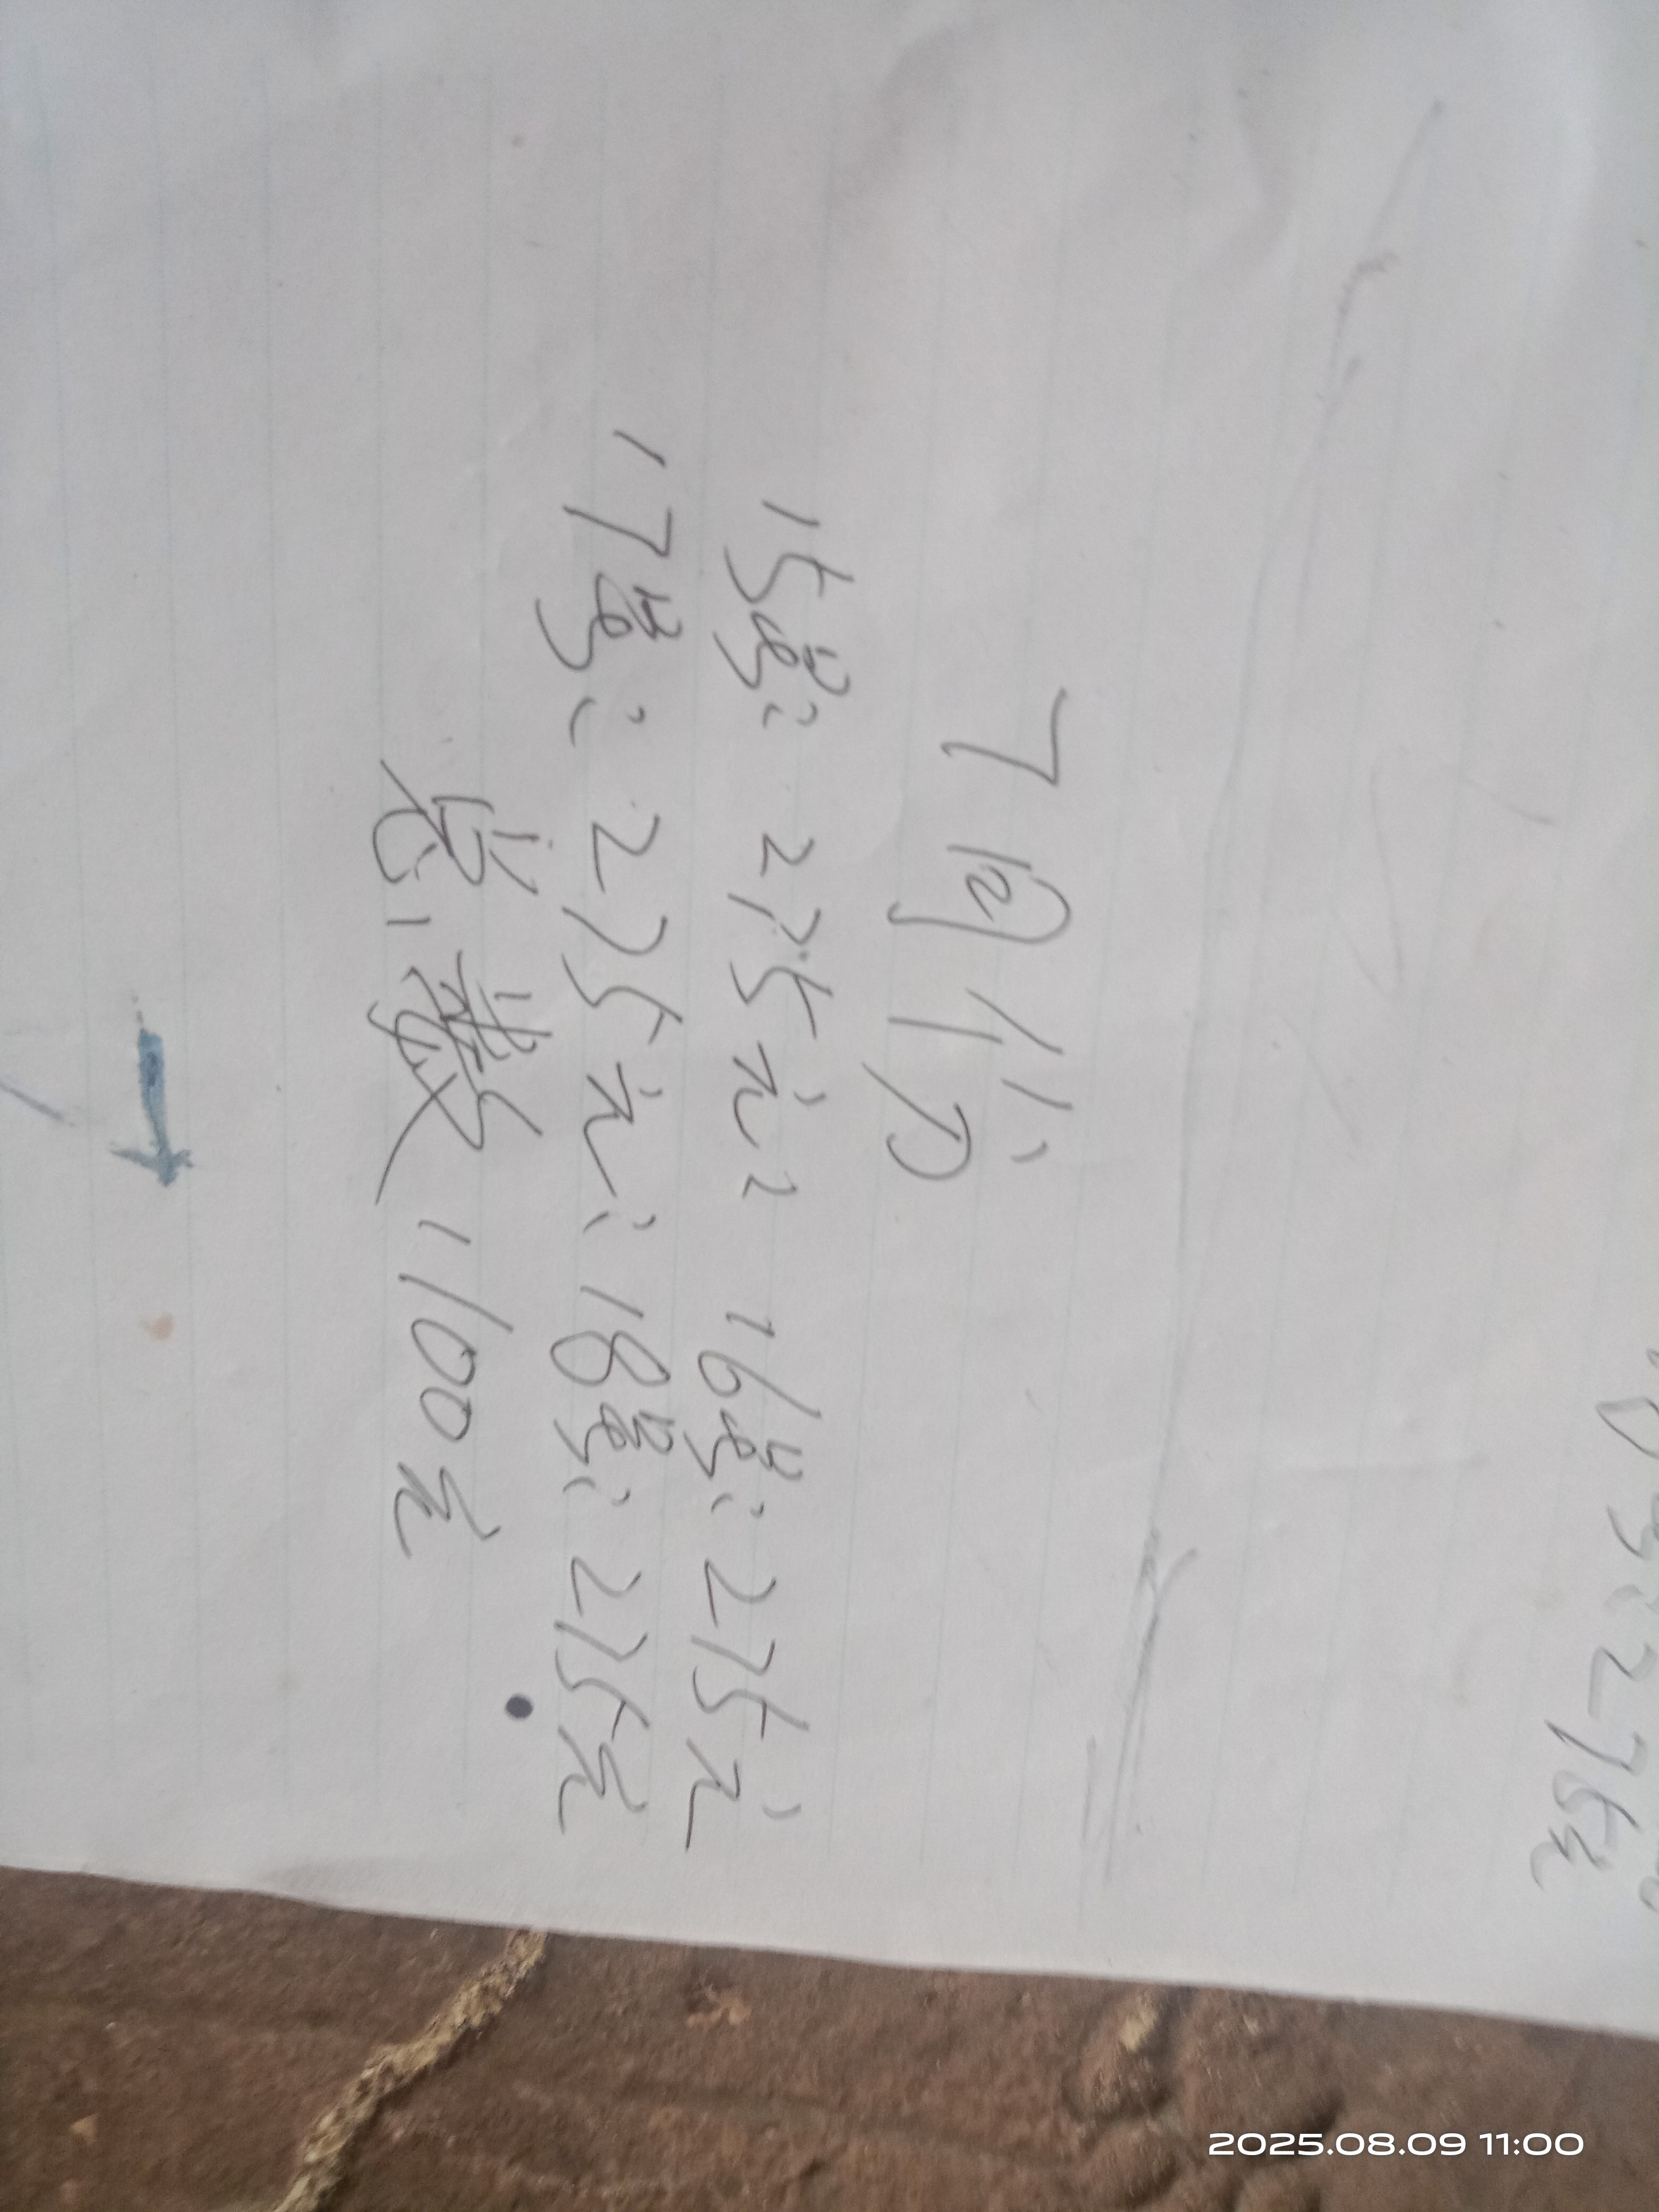 7月份
15号：275元：16号：275元
17号：275元：18号：275元
总数1100元
2025.08.09 11:00